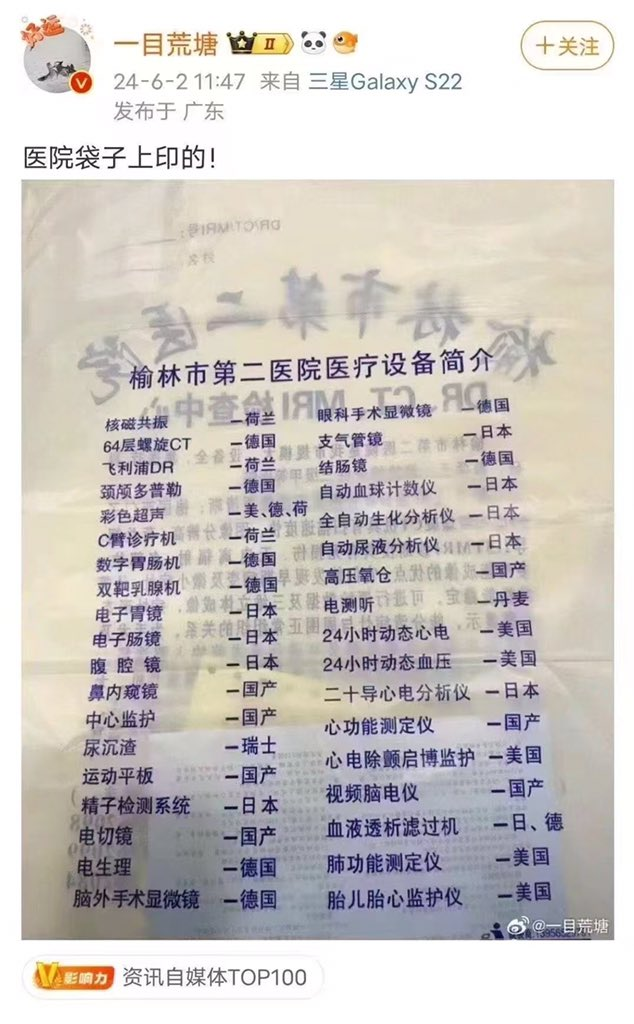 好运
一目荒塘 II
+关注
24-6-2 11:47 来自 三星Galaxy S22
发布于 广东
医院袋子上印的!
DR/CT/MRI号:
姓名
榆林市第二医院
DR、CT、MRI检查中心
榆林市第二医院医疗设备简介
核磁共振 —荷兰
64层螺旋CT —德国
飞利浦DR —荷兰
颈颅多普勒 —德国
彩色超声 —美、德、荷
C臂诊疗机 —荷兰
数字胃肠机 —德国
双靶乳腺机 —德国
电子胃镜 —日本
电子肠镜 —日本
腹腔镜 —日本
鼻内窥镜 —国产
中心监护 —国产
尿沉渣 —瑞士
运动平板 —国产
精子检测系统 —日本
电切镜 —国产
电生理 —德国
脑外手术显微镜 —德国
眼科手术显微镜 —德国
支气管镜 —日本
结肠镜 —德国
自动血球计数仪 —日本
全自动生化分析仪 —日本
自动尿液分析仪 —日本
高压氧仓 —国产
电测听 —丹麦
24小时动态心电 —美国
24小时动态血压 —美国
二十导心电分析仪 —日本
心功能测定仪 —国产
心电除颤启博监护 —美国
视频脑电仪 —国产
血液透析滤过机 —日、德
肺功能测定仪 —美国
胎儿胎心监护仪 —美国
@一目荒塘
V影响力 资讯自媒体TOP100